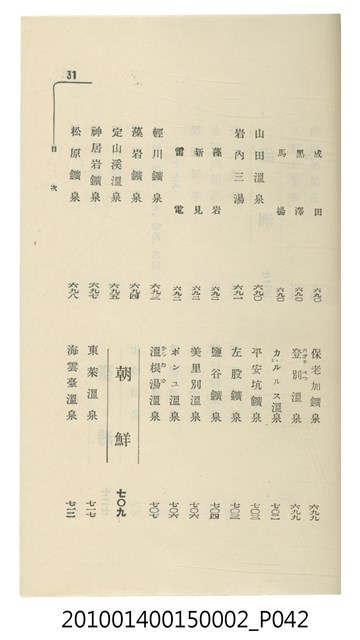 31
目次
成田 六九〇
黑澤 六九〇
馬場 六九〇
山田溫泉 六九〇
岩內三湯 六九一
藻岩 六九二
新見 六九二
雷電 六九二
輕川鑛泉 六九三
藻岩鑛泉 六九四
定山溪溫泉 六九五
神居岩鑛泉 六九七
松原鑛泉 六九八
保老加鑛泉 六九九
登別溫泉 六九九
カルルス溫泉 七〇二
平安坑鑛泉 七〇三
左股鑛泉 七〇三
鹽谷鑛泉 七〇四
美里別溫泉 七〇五
ポンユ溫泉 七〇六
溫根湯溫泉 七〇七
朝鮮 七〇九
東萊溫泉 七一七
海雲臺溫泉
201001400150002_P042